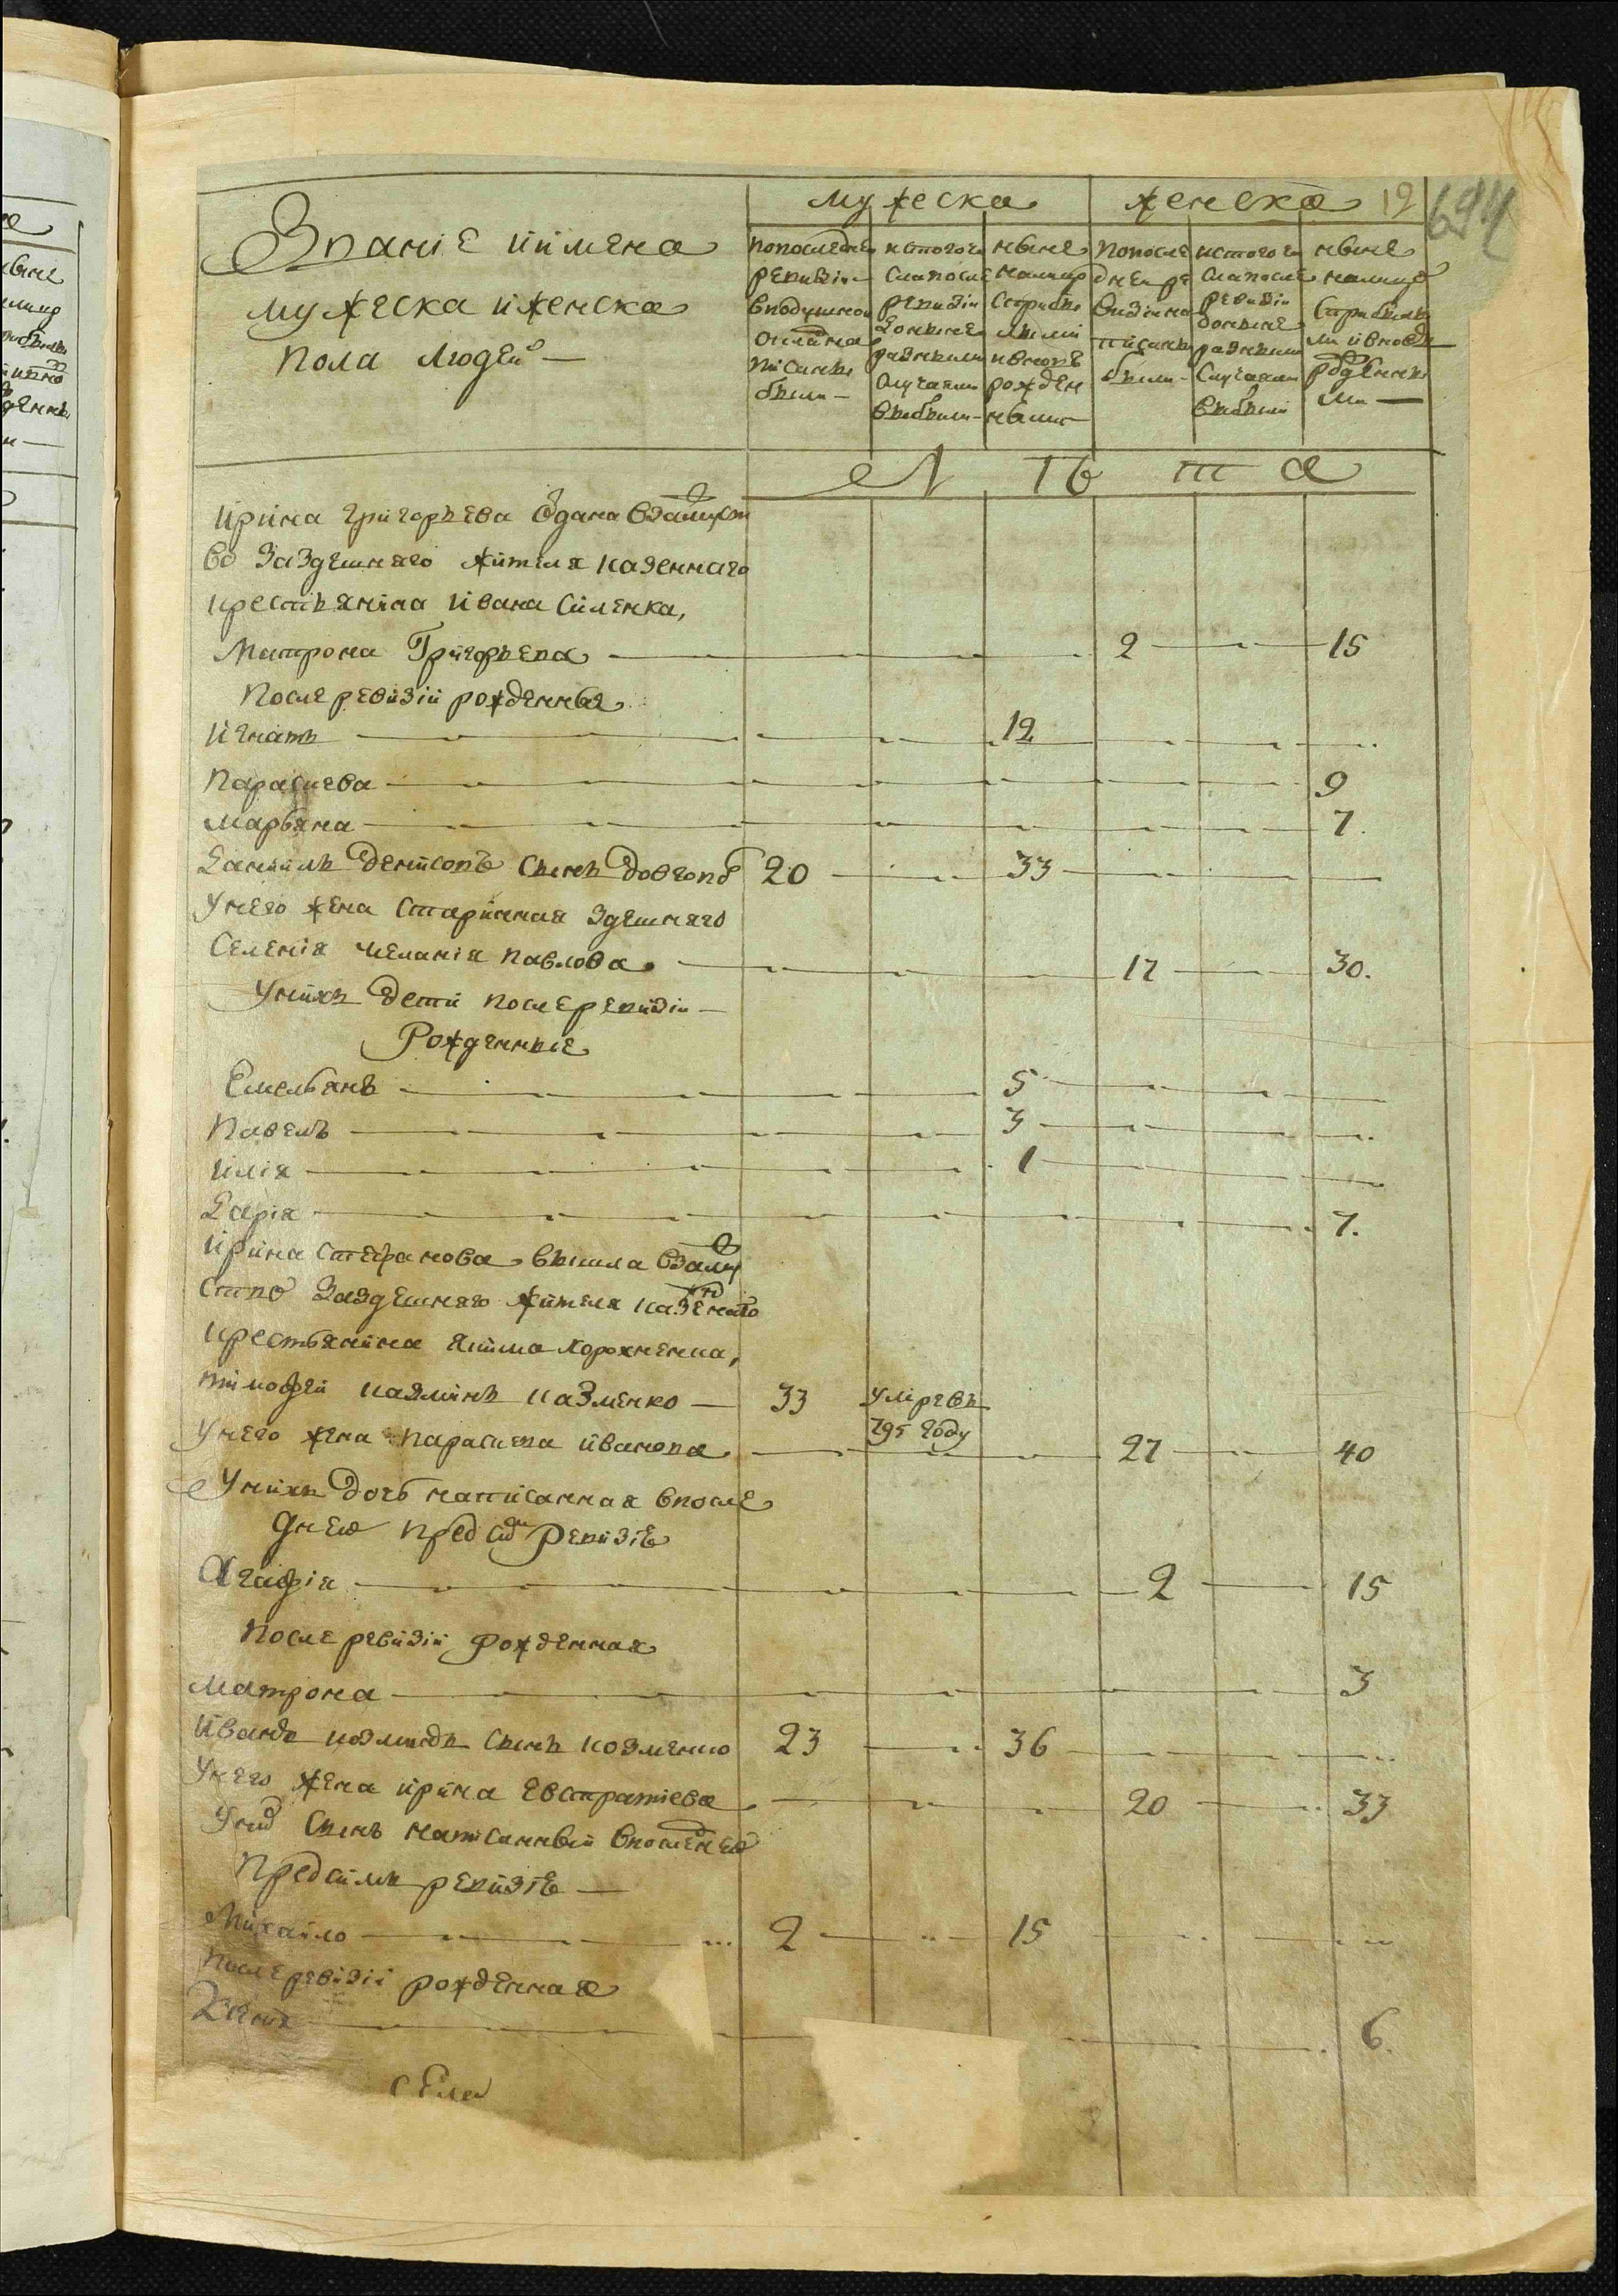 12
694
Званіе иимена
мужеска иженска
пола людей —
мужеска
женска
попоследней ревизіи вподушном окладе написаны были —
истого числа после ревизіи доныне разными случаями выбыли —
ныне налицо сприбылыми ивновь рожденными
попоследней ревизіи написаны были —
истого числа после ревизіи доныне разными случаями выбыли
ныне налицо сприбылыми ивновь рожденными —
Лѣта
Ирина Григорьева одана взамужст
во заздешняго жителя казеннаго
крестьянина Ивана Силенка,
Матрона Григорьева — 2 — 15
После ревизіи рожденные
Игнатъ — 12
Параскева — 9
Марьяна — 7.
Даніилъ Денисовъ сынъ Довгопол 20 — 33
Унего жена старинная здешняго
селенія Меланія Павлова — 17 — 30.
Унихъ дети послеревизіи —
Рожденные
Емельянъ — 5
Павелъ — 3
Илія — 1
Дарія — 7.
Ирина Стефанова вышла взамуж
ство заздешняго жителя казеннаго
крестьянина Якима
Тимофей Казминъ Казменко — 33 умре въ
795 году
Унего жена Параскева Иванова — 27 — 40
Унихъ дочь написанная впосле
днею пред сим ревизіе
Агафія — 2 — 15
После ревизіи рожденная
Матрона — 3
Иванъ Козминъ сынъ Козменко 23 — 36
Унего жена Ирина Евстратіева — 20 — 33
Уних сынъ написанный впоследнею
предсимъ ревизіе —
Михайло — 2 — 15
После ревизіи рожденная
— 6.